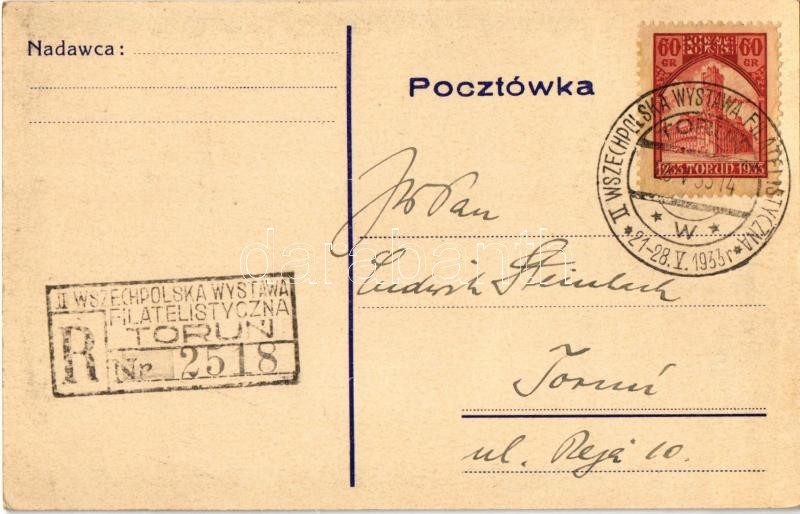 Nadawca:
Pocztówka
60 60
GR GR
1233 TORUŃ 1933
II WSZECHPOLSKA WYSTAWA FILATELISTYCZNA
TORUŃ
V 33 14
* W *
* 21-28. V. 1933 r *
Pan
Ludwik Steinbach
Toruń
ul. Reja 10.
II WSZECHPOLSKA WYSTAWA
FILATELISTYCZNA
TORUŃ
R Nr 2518
darabanth